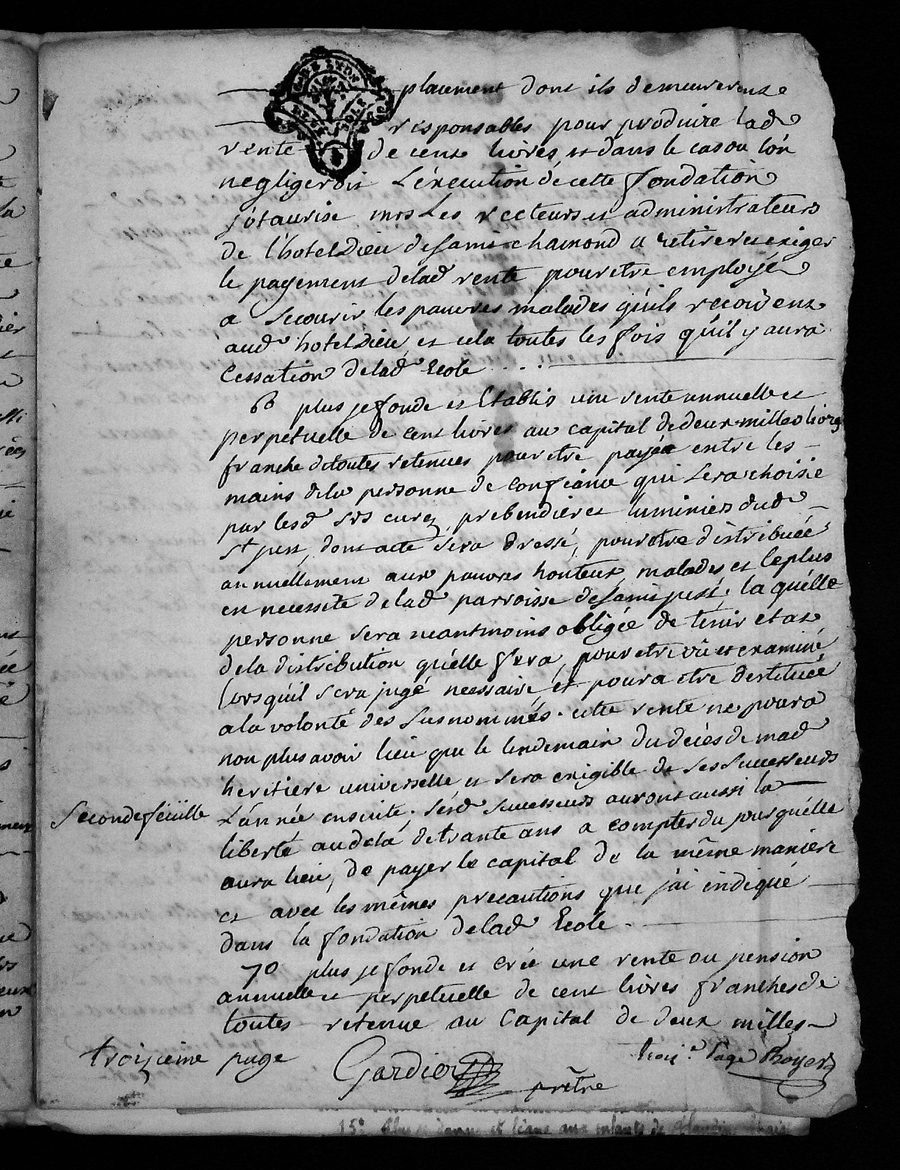 placement dont ils demeurerons
responsables pour produire lad
rente de cent livres, et dans le cas ou l'on
negligeroit L'éxecution de cette fondation
j'otaurise mrs Les recteurs et administrateurs
de l'hotelDieu de saint chamond a retirer et exiger
le payement delad rente pour etre employé
a secourir les pauvres malades qu'ils recoivent
aud hotelDieu et cela toutes les fois qu'il y aura
Cessation delad Ecole ....
6o plus je fonde et Etablis une rente annuelle et
perpetuelle de cent livres au capital de deux milles livres
franche detoutes retenues pour etre payée entre les
mains dela personne de confiance qui sera choisie
par lesd srs curez, prebendier et luminier dud
st just, dont acte sera dressé, pour etre distribuée
annuellement aux pauvres honteux, malades et le plus
en necessité delad parroisse desaint just; la quélle
personne sera neantmoins obligée de tenir etat
dela distribution qu'elle fera, pour etre vû et examiné
lorsquil sera jugé necessaire et poura etre destituée
a la volonté des susnommés. cette rente ne poura
non plus avoir lieu que le lendemain du décés de mad
heritiere universelle et sera exigible de ses successeurs
L'année ensuite; sesd successeurs auront aussi la
Seconde feüille
liberté audela detrante ans a compter du jour quélle
aura lieu, de payer le capital de la même maniere
et avec les mêmes precautions que j'ai indiqué
dans la fondation delad Ecole. -
7o plus je fonde et crée une rente ou pension
annuelle et perpetuelle de cent livres franches de
toutes retenue au Capital de deux milles
troizieme page Gardier prêtre troize. Page Boyer
15o Plus je donne et legue aux enfants de